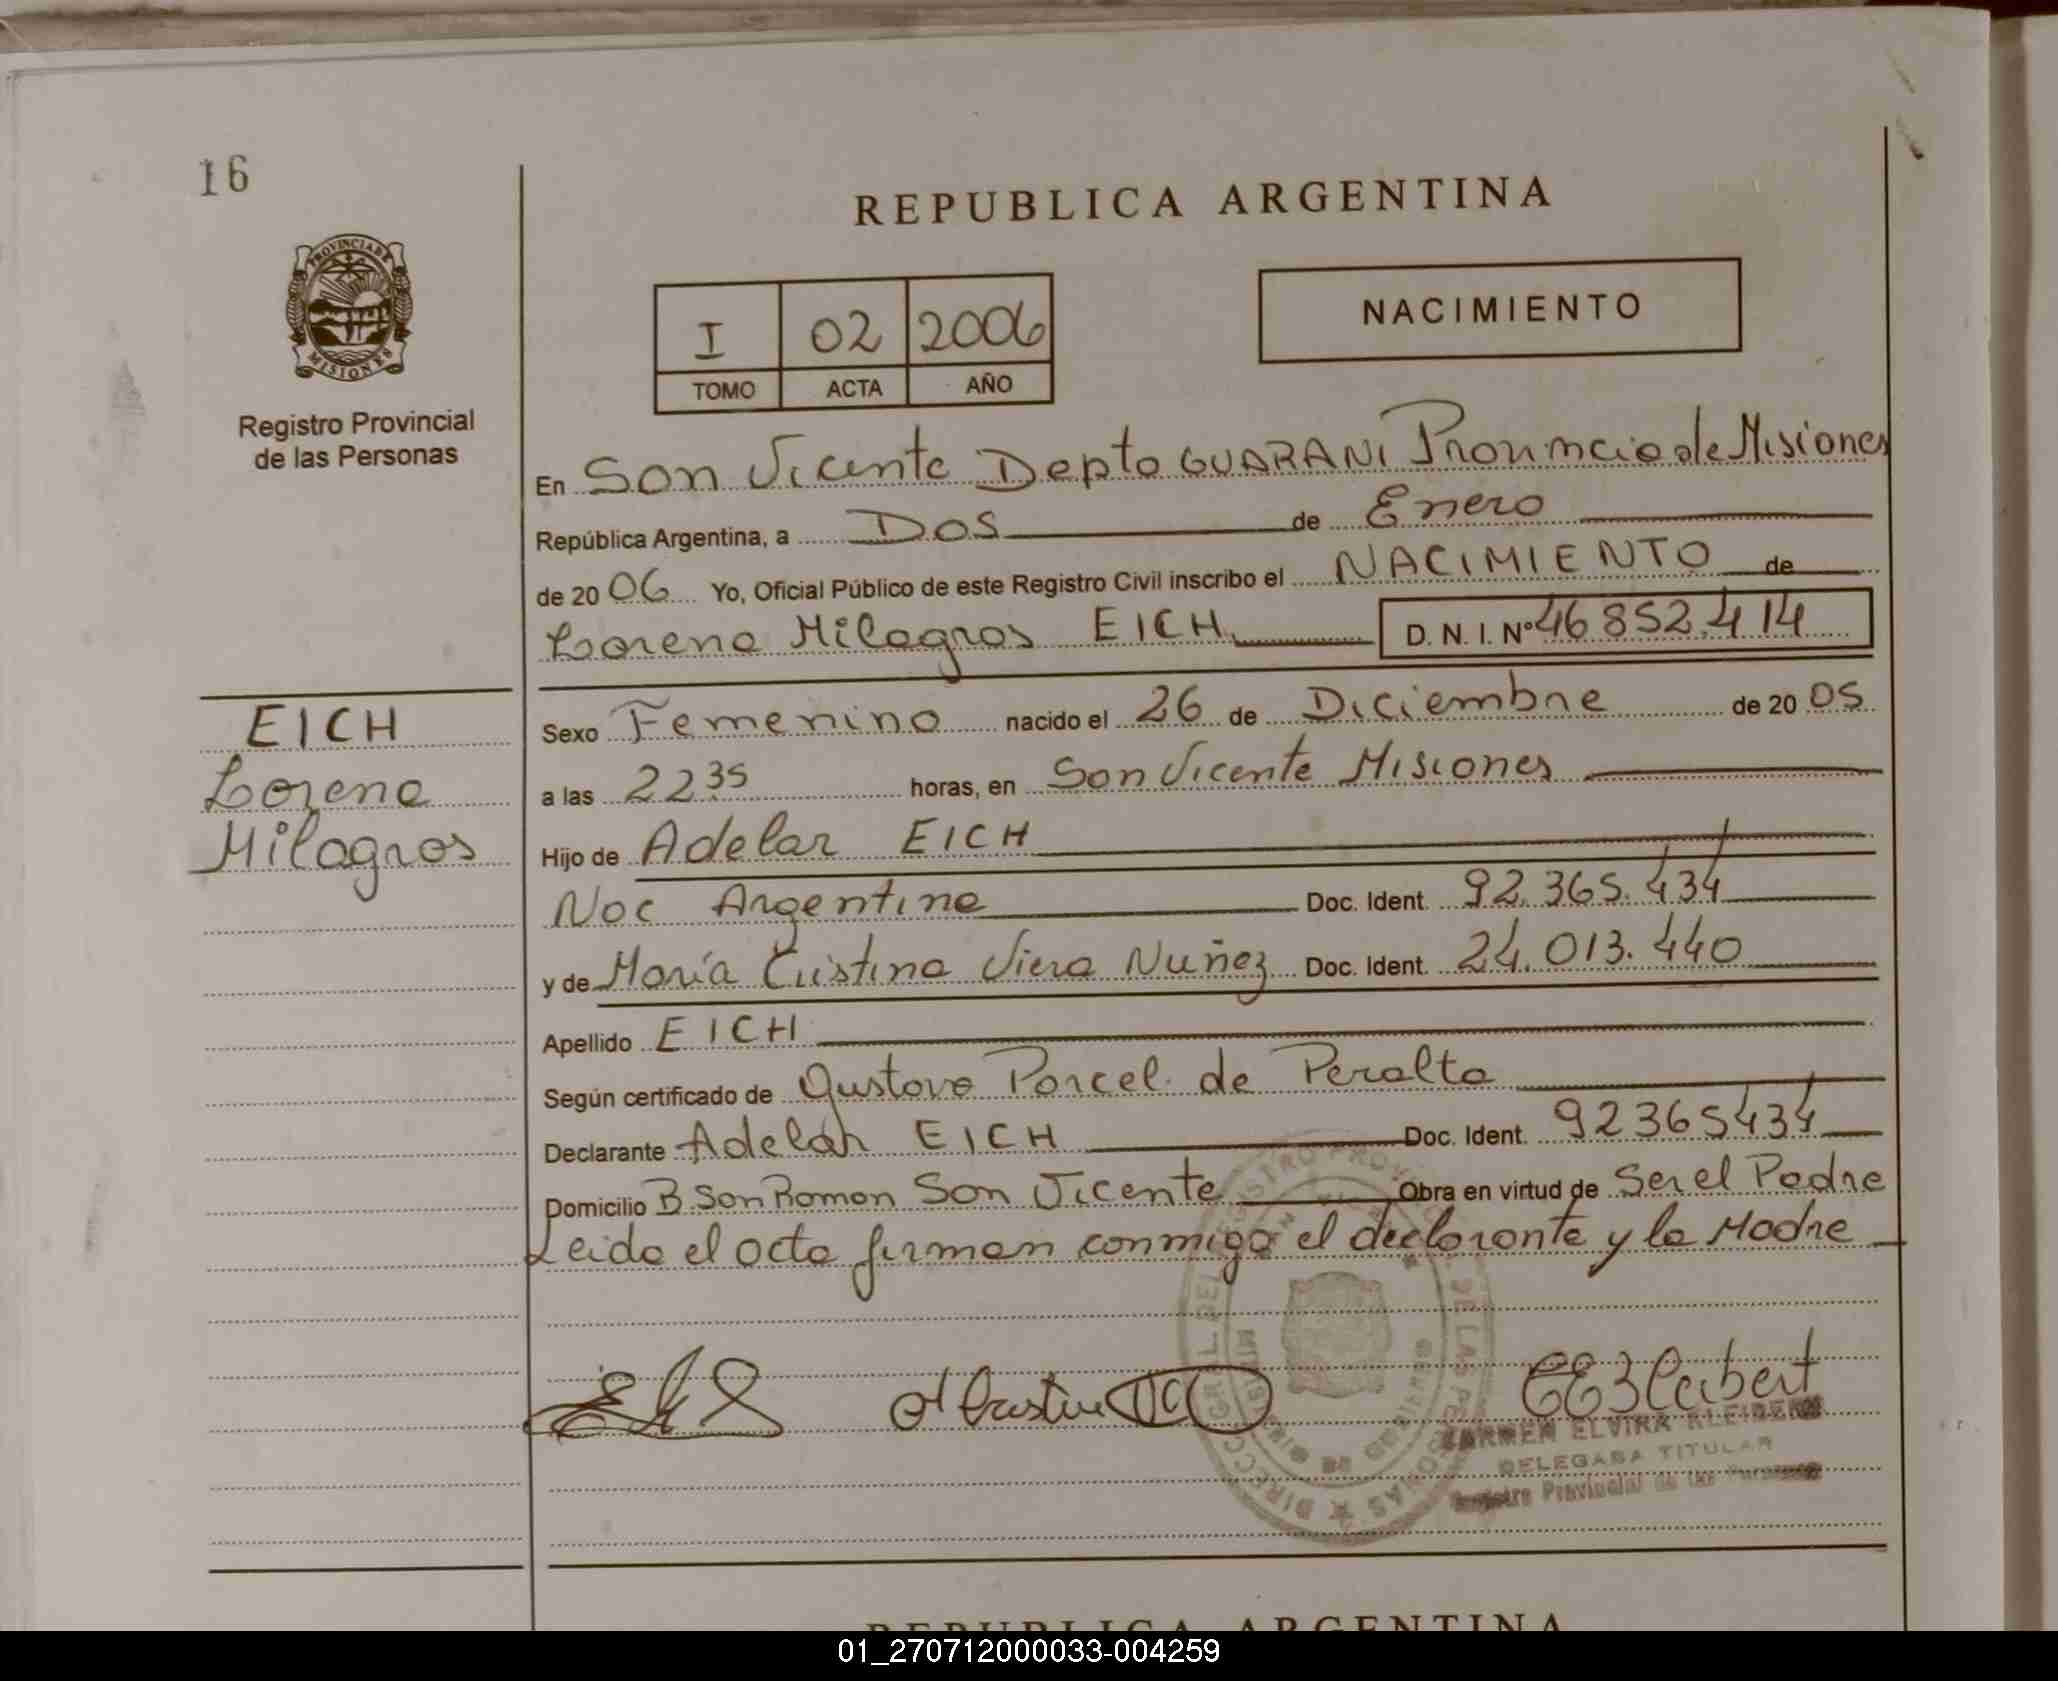 16
REPUBLICA ARGENTINA
PROVINCIA DE
MISIONES
Registro Provincial
de las Personas
I 02 2006
TOMO ACTA AÑO
NACIMIENTO
En San Vicente Depto GUARANI Provincia de Misiones
República Argentina, a Dos de Enero
de 20 06 Yo, Oficial Público de este Registro Civil inscribo el NACIMIENTO de
Lorena Milagros EICH D. N. I. Nº 46 852.414
EICH
Lorena
Milagros
Sexo Femenino nacido el 26 de Diciembre de 20 05
a las 22.35 horas, en San Vicente Misiones
Hijo de Adelar EICH
Nac Argentina Doc. Ident. 92.365.434
y de María Cristina Viera Nuñez Doc. Ident. 24.013.440
Apellido EICH
Según certificado de Gustavo Porcel de Peralta
Declarante Adelar EICH Doc. Ident. 92365434
Domicilio B. San Ramon San Vicente Obra en virtud de Ser el Padre
Leida el acta firman conmigo el declarante y la Madre
CARMEN ELVIRA KLEIBERT
DELEGADA TITULAR
Registro Provincial de las Personas
REPUBLICA ARGENTINA
01_270712000033-004259